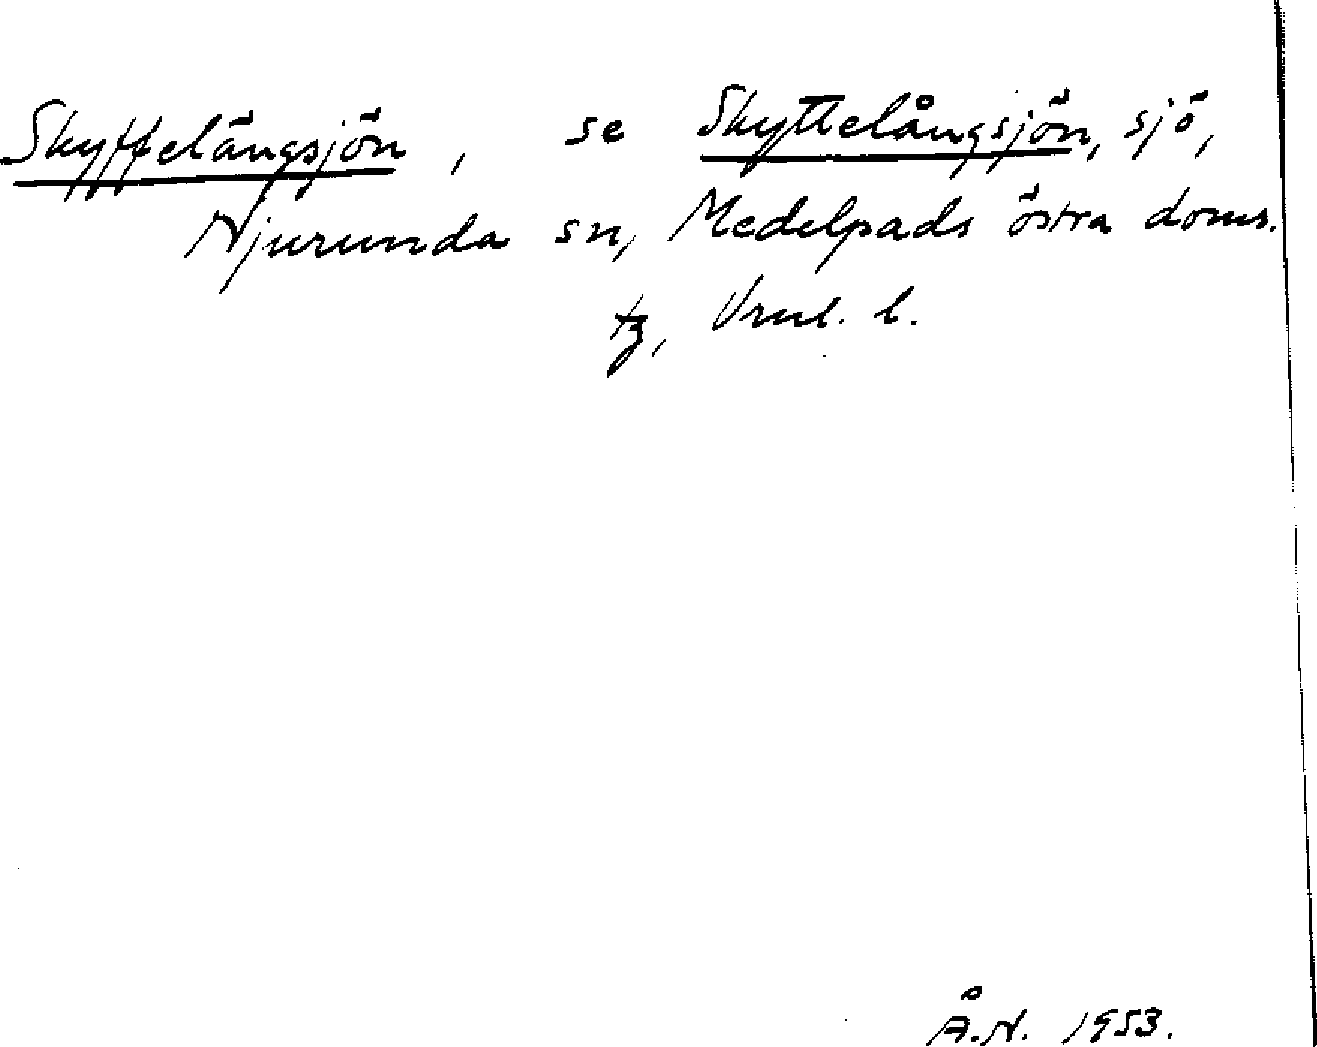 Skyffelängsjön, se Skyttelångsjön, sjö,
Njurunda sn, Medelpads östra doms.
tg, Vrnl. l.
Å.N. 1953.